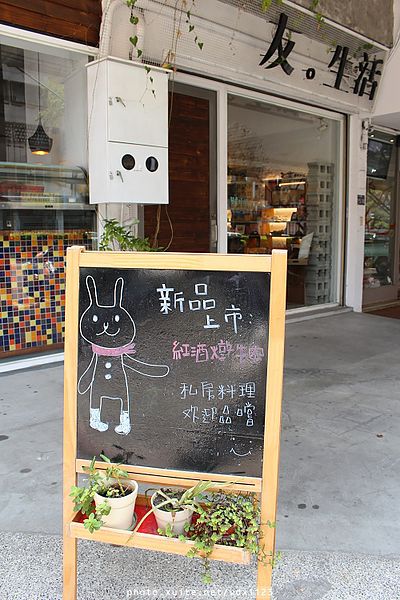 友。生活
新品
上市:
紅酒燉牛肉
私房料理
欢迎品嚐
photo.xuite.net/wox1123